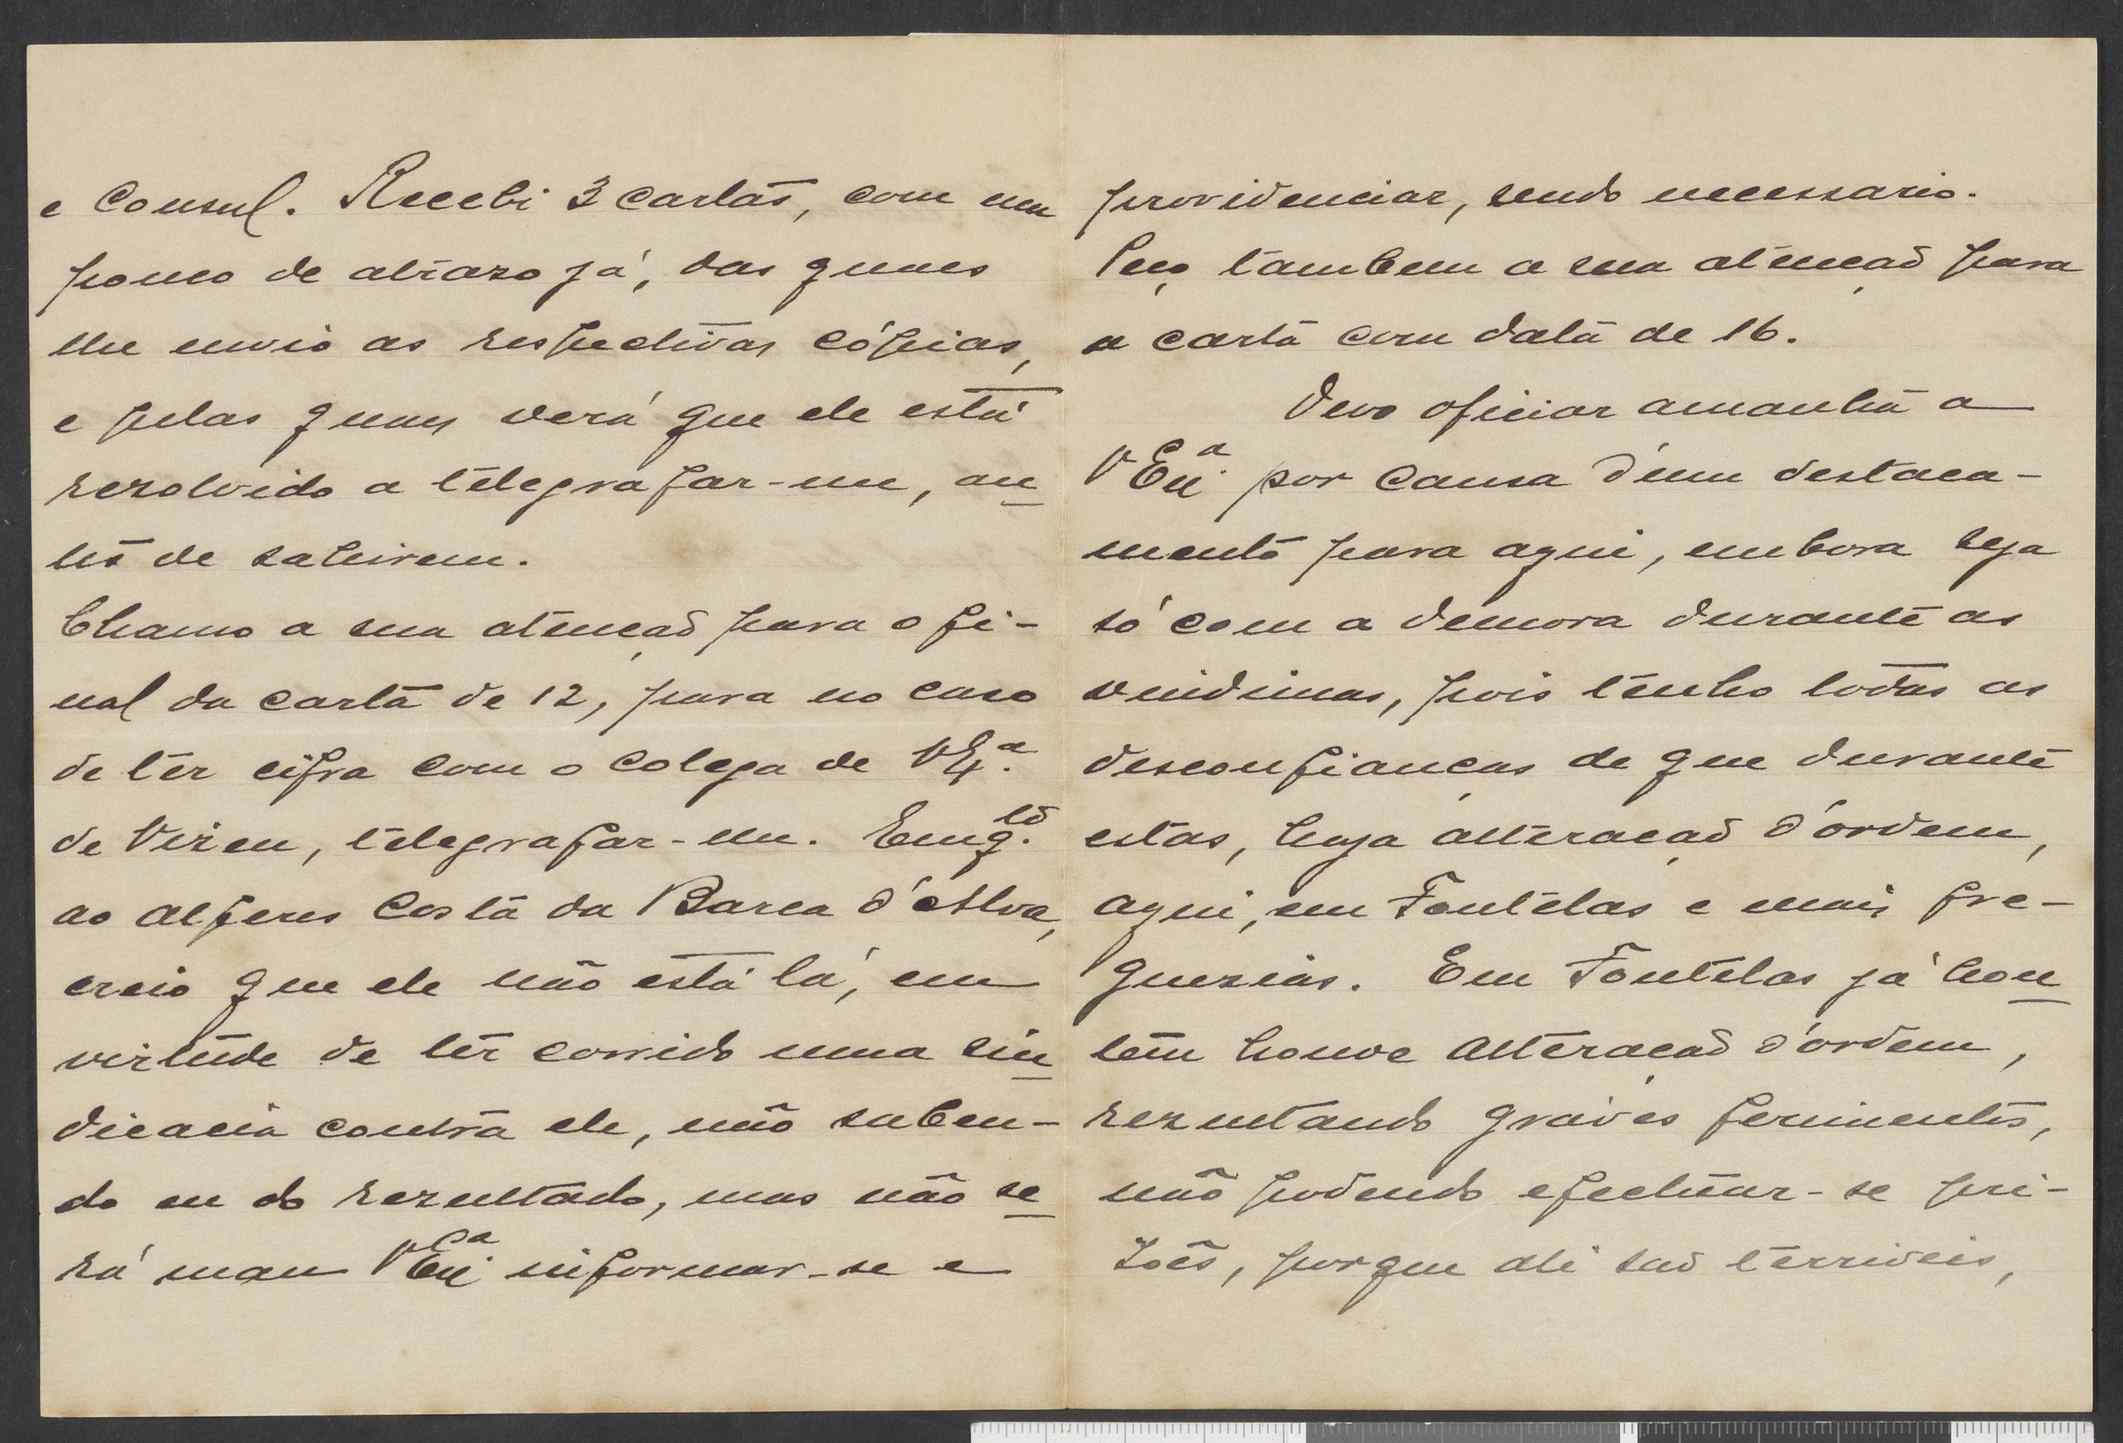 e Consul. Recebi 3 cartas, com um
pouco de atrazo já, das quaes
lhe envio as respectivas cópias,
e pelas quaes verá que ele está
rezolvido a telegrafar-me, an
tes de sahirem.
Chamo a sua atenção para o fi-
nal da carta de 12, para no caso
de ter cifra com o colega de VExª.
de Vizeu, telegrafar-me. Emq.to
ao alferes Costa da Barca d'Alva,
creio que ele não está lá, em
virtude de ter corrido uma sin
dicacia contra ele, não saben-
do eu do rezultado, mas não se
rá mau VExcia informar-se e
providenciar, sendo necessario.
Peço tambem a sua atenção para
a carta com data de 16.
Devo oficiar amanhã a
VExª por causa d'um destaca-
mento para aqui, embora seja
só com a demora durante as
vindimas, pois tenho todas as
desconfianças de que durante
estas, haja alteração d'ordem,
aqui, em Fontelas e mais fre-
guezias. Em Fontelas já hon
tem houve alteração d'ordem,
rezultando graves ferimentos,
não podendo efectuar-se pri-
zões, porque ali são terriveis,